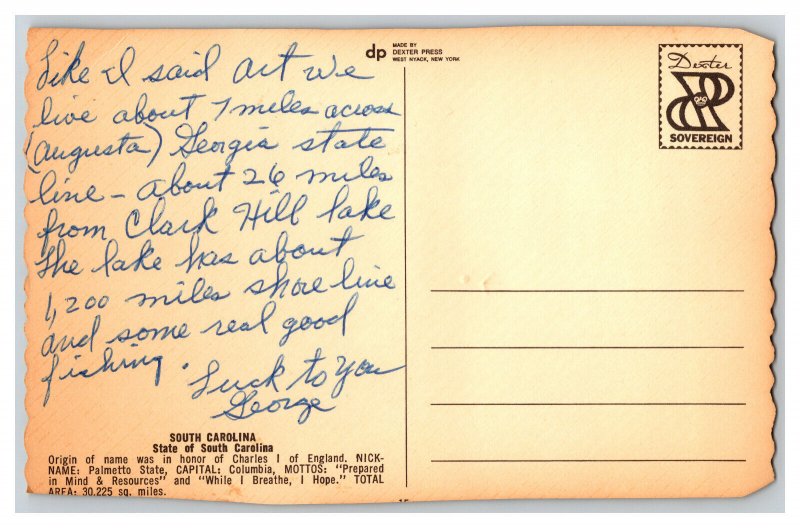 Like I said Art we
live about 7 miles across
(augusta) Georgia state
line - about 26 miles
from Clark Hill lake
The lake has about
1,200 miles shore line
and some real good
fishing.
Luck to you
George
SOUTH CAROLINA
State of South Carolina
Origin of name was in honor of Charles I of England. NICK-
NAME: Palmetto State, CAPITAL: Columbia, MOTTOS: "Prepared
in Mind & Resources" and "While I Breathe, I Hope." TOTAL
AREA: 30,225 sq. miles.
dp
MADE BY
DEXTER PRESS
WEST NYACK, NEW YORK
Dexter
SOVEREIGN